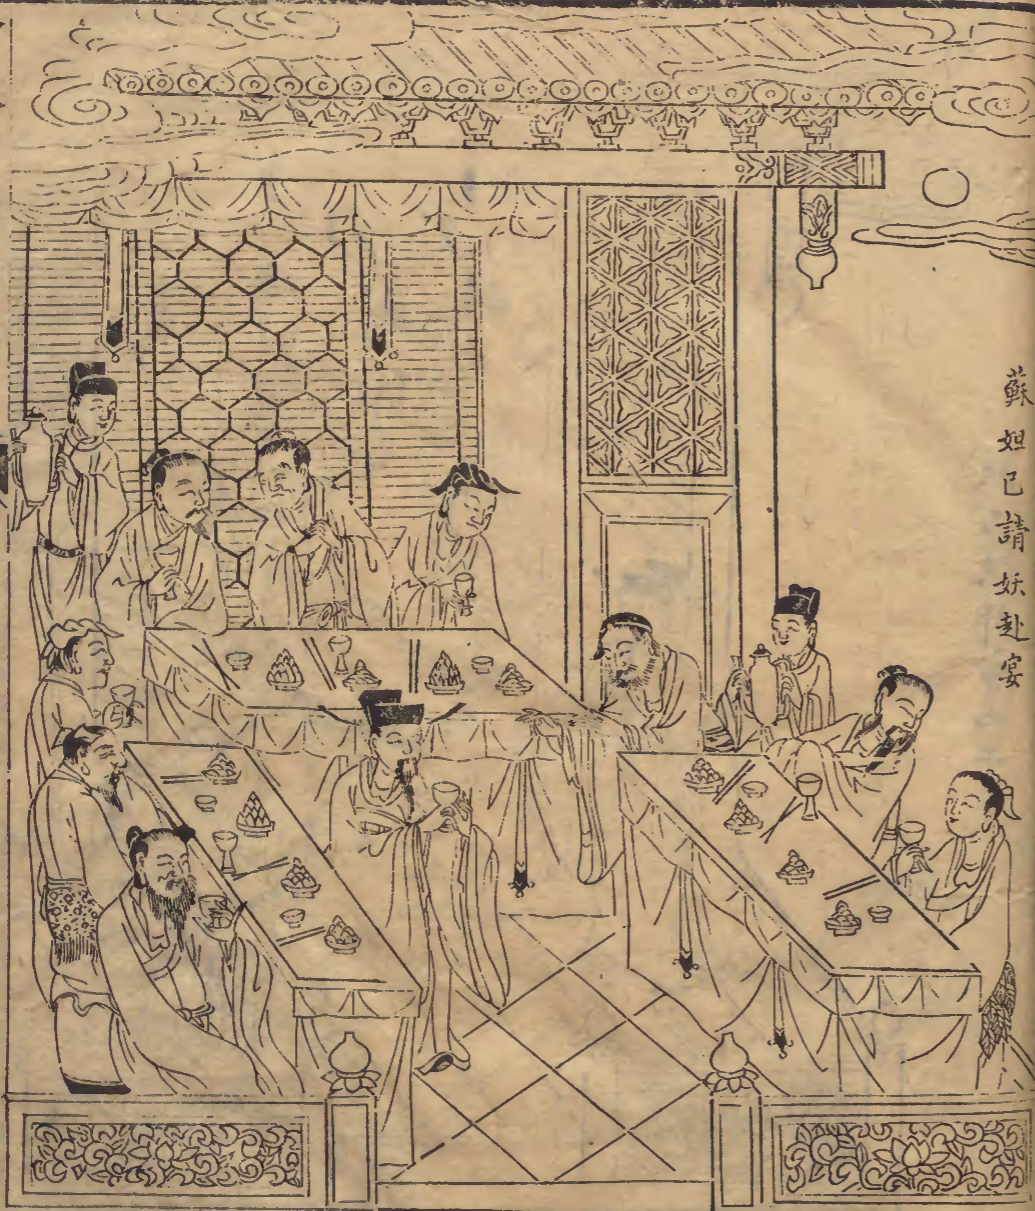 蘇妲已請妖赴宴